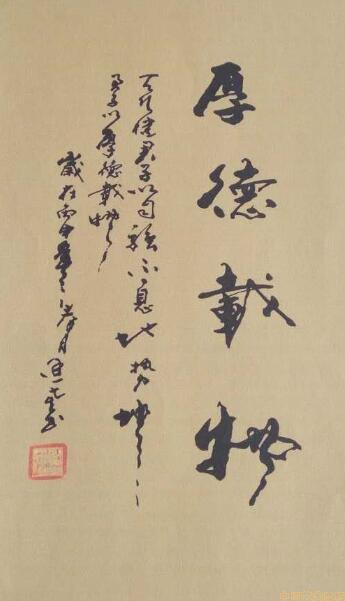 厚德載物
天行健君子以自強不息地勢坤
君子以厚德載物
歲在丙申年之春月